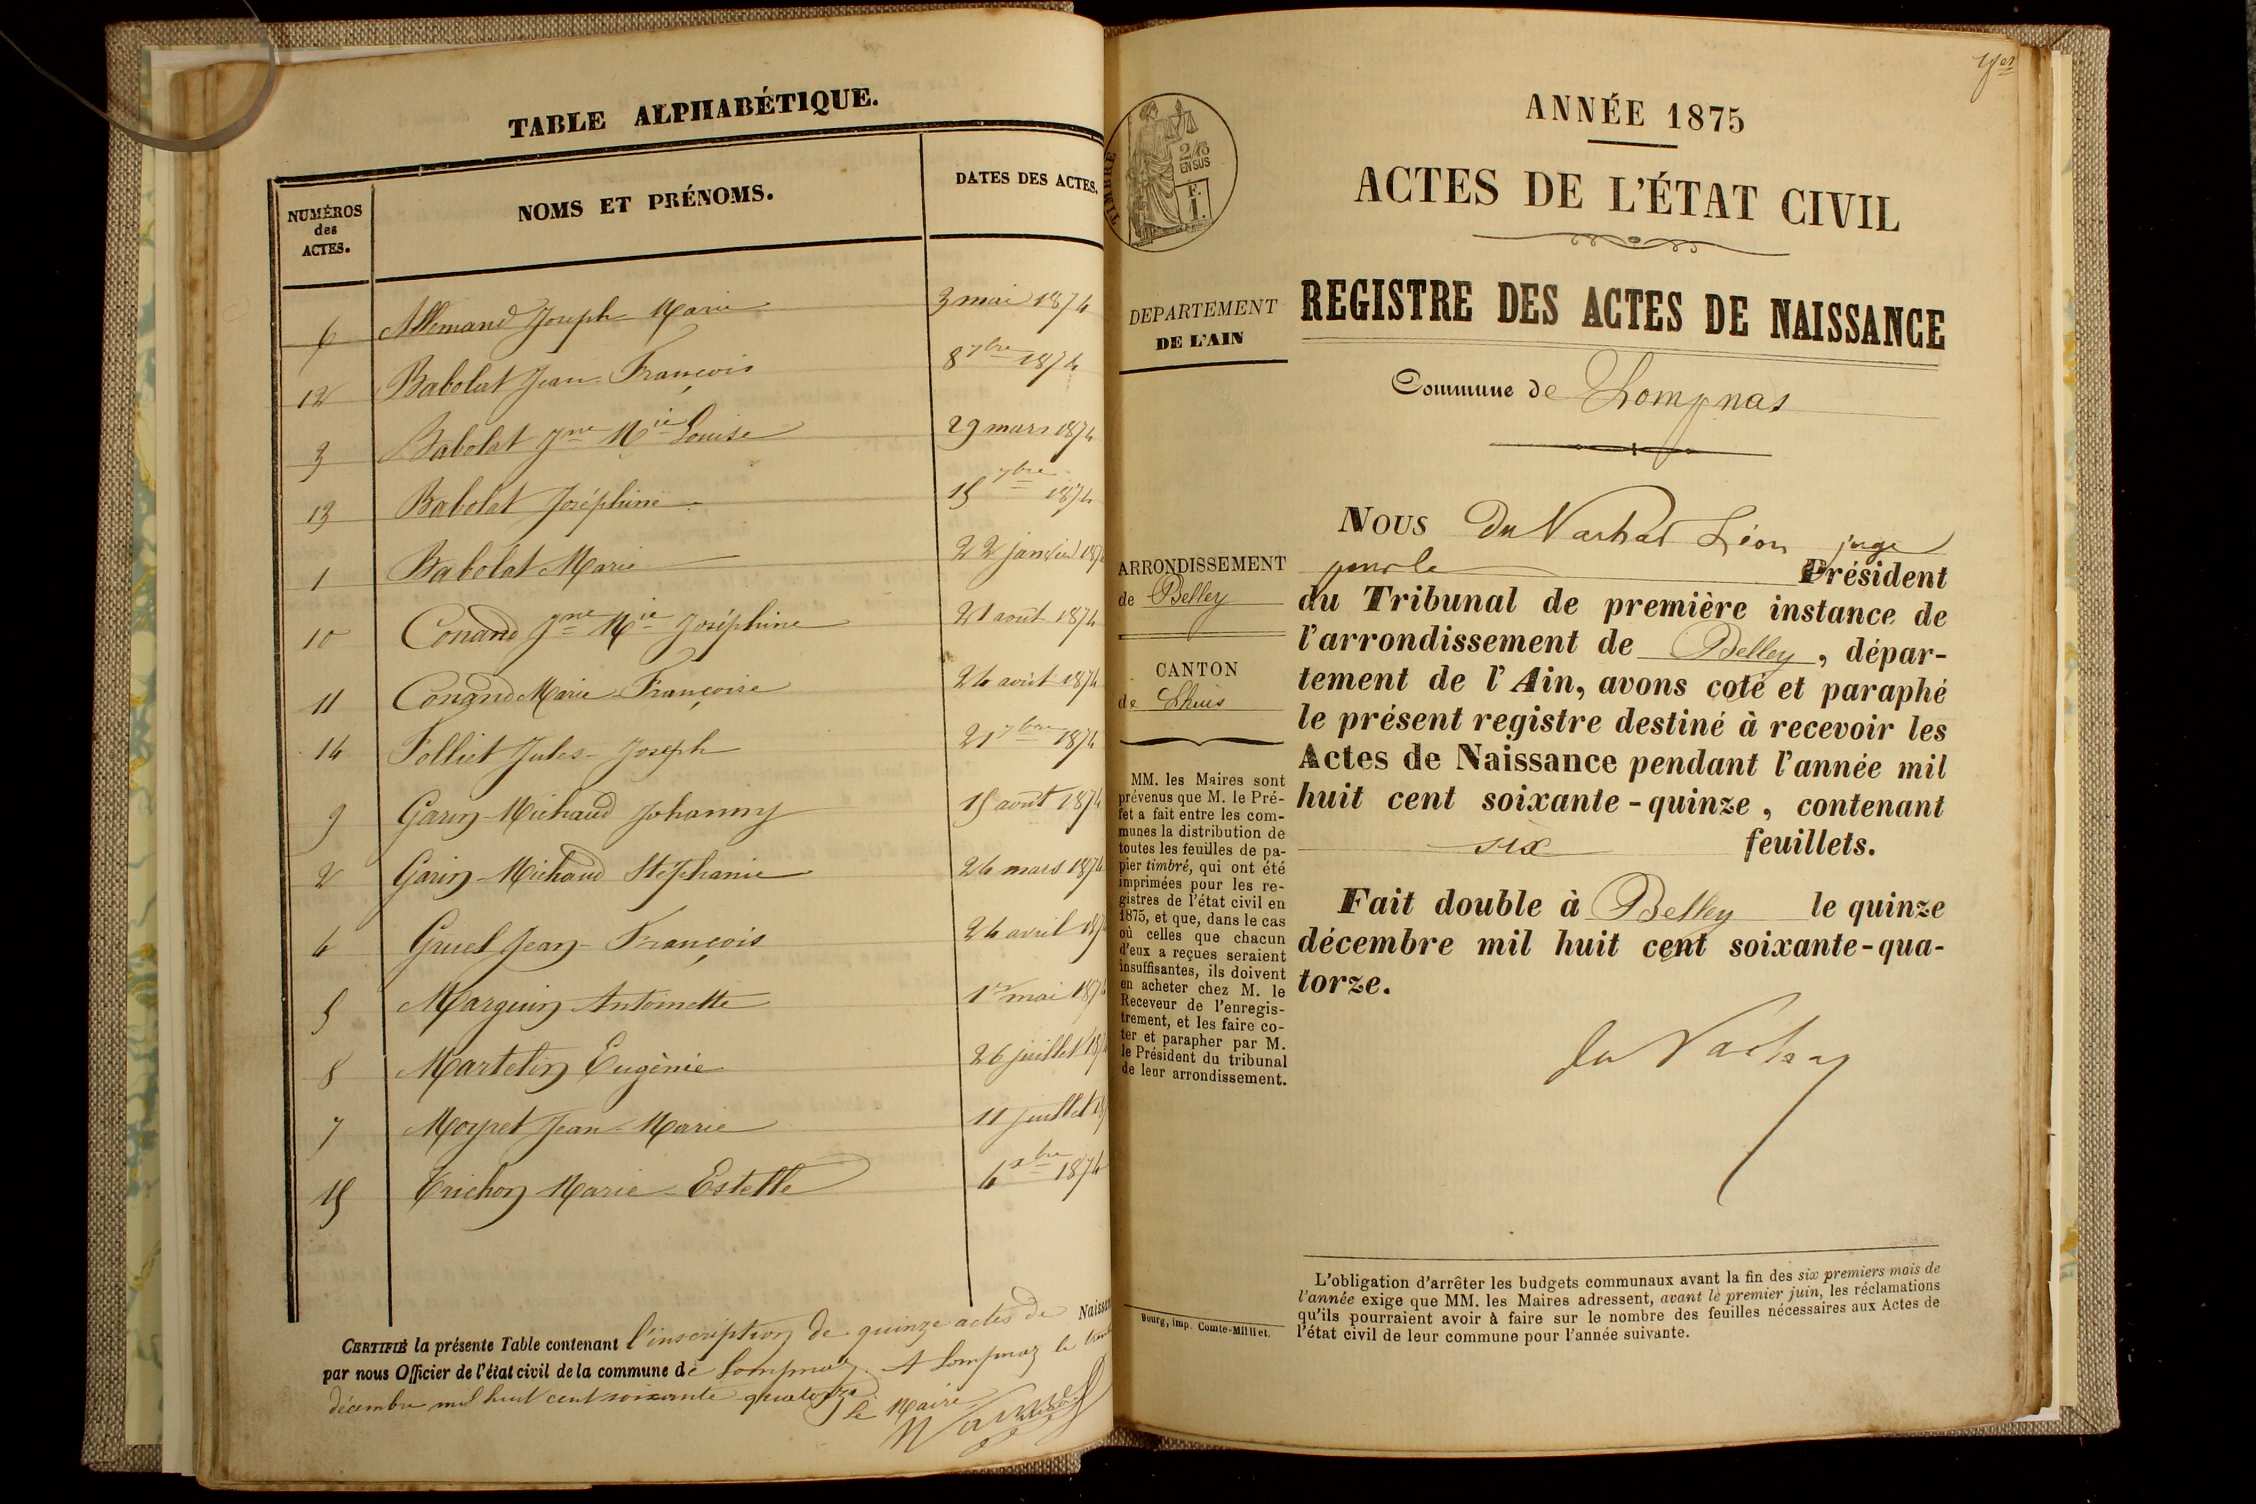 TABLE ALPHABÉTIQUE.
NUMÉROS des ACTES.
NOMS ET PRÉNOMS.
DATES DES ACTES.
6 Allemand Joseph Marie 3 mai 1874
12 Babolat Jean François 8 7bre 1874
3 Babolat Jne Mie Louise 29 mars 1874
13 Babolat Joséphine 15 7bre 1874
1 Babolat Marie 22 janvier 187
10 Conand Jne Mie Joséphine 21 août 1874
11 Conand Marie Françoise 24 août 1874
14 Folliet Jules Joseph 21 7bre 1874
9 Garin-Michaud Johanny 15 août 1874
2 Garin-Michaud Stéphanie 24 mars 1874
4 Gruel Jean François 24 avril 187
5 Marguin Antoinette 1er mai 187
8 Martelin Eugènie 26 juillet 187
7 Moyret Jean Marie 11 juillet 18
15 Trichon Marie Estelle 4 xbre 1874
CERTIFIÉ la présente Table contenant l'inscription de quinze actes de Naissan
par nous Officier de l'état civil de la commune de Lompnaz. A Lompnaz le
décembre mil huit cent soixante quatorze
le Maire
1er
ANNÉE 1875
ACTES DE L'ÉTAT CIVIL
TIMBRE
2/10
EN SUS
F.
1.
REGISTRE DES ACTES DE NAISSANCE
DEPARTEMENT
DE L'AIN
Commune de Lompnas
NOUS du Vachat Léon juge
pour le Président
du Tribunal de première instance de
l'arrondissement de Belley, dépar-
tement de l'Ain, avons coté et paraphé
le présent registre destiné à recevoir les
Actes de Naissance pendant l'année mil
huit cent soixante-quinze, contenant
six feuillets.
Fait double à Belley le quinze
décembre mil huit cent soixante-qua-
torze.
du Vachat
ARRONDISSEMENT
de Belley
CANTON
de Lhuis
MM. les Maires sont
prévenus que M. le Pré-
fet a fait entre les com-
munes la distribution de
toutes les feuilles de pa-
pier timbré, qui ont été
imprimées pour les re-
gistres de l'état civil en
1875, et que, dans le cas
où celles que chacun
d'eux a reçues seraient
insuffisantes, ils doivent
en acheter chez M. le
Receveur de l'enregis-
trement, et les faire co-
ter et parapher par M.
le Président du tribunal
de leur arrondissement.
Bourg, imp. Comte-Milliet.
L'obligation d'arrêter les budgets communaux avant la fin des six premiers mois de
l'année exige que MM. les Maires adressent, avant le premier juin, les réclamations
qu'ils pourraient avoir à faire sur le nombre des feuilles nécessaires aux Actes de
l'état civil de leur commune pour l'année suivante.